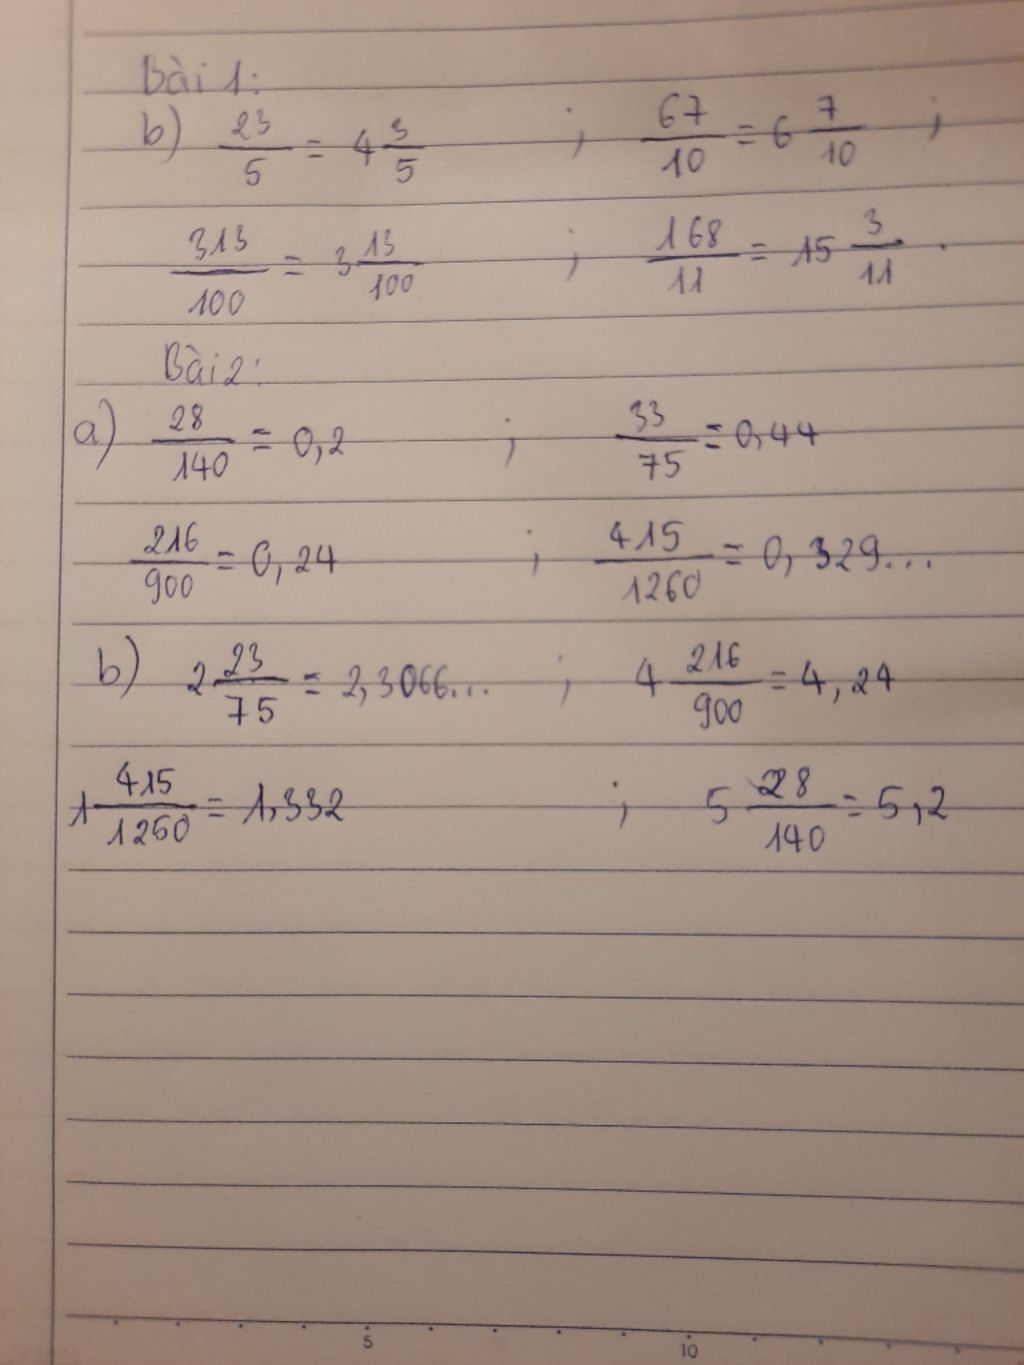 Bài 1:
b) 23/5 = 4 3/5 ; 67/10 = 6 7/10 ;
313/100 = 3 13/100 ; 168/11 = 15 3/11 .
Bài 2:
a) 28/140 = 0,2 ; 33/75 = 0,44
216/900 = 0,24 ; 415/1260 = 0,329...
b) 2 23/75 = 2,3066... ; 4 216/900 = 4,24
1 415/1250 = 1,332 ; 5 28/140 = 5,2
5 10